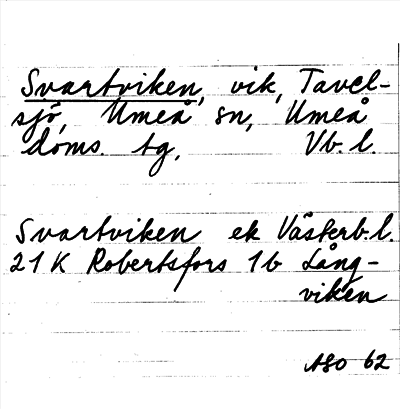 Svartviken, vik, Tavel-
sjö, Umeå sn, Umeå
doms. tg, Vb. l.
Svartviken ek Västerb. l.
21 K Robertsfors 1 b Lång-
viken
ASO 62